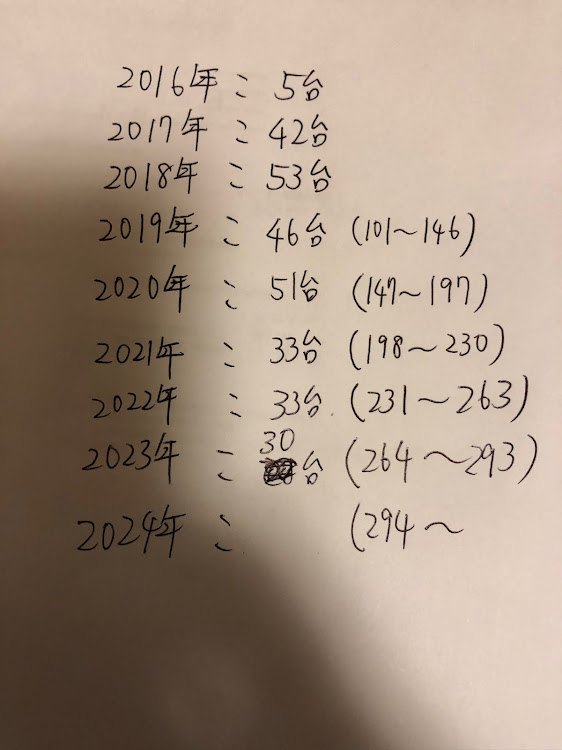 2016年: 5台
2017年: 42台
2018年: 53台
2019年: 46台 (101~146)
2020年: 51台 (147~197)
2021年: 33台 (198~230)
2022年: 33台 (231~263)
2023年: 30台 (264~293)
2024年: (294~